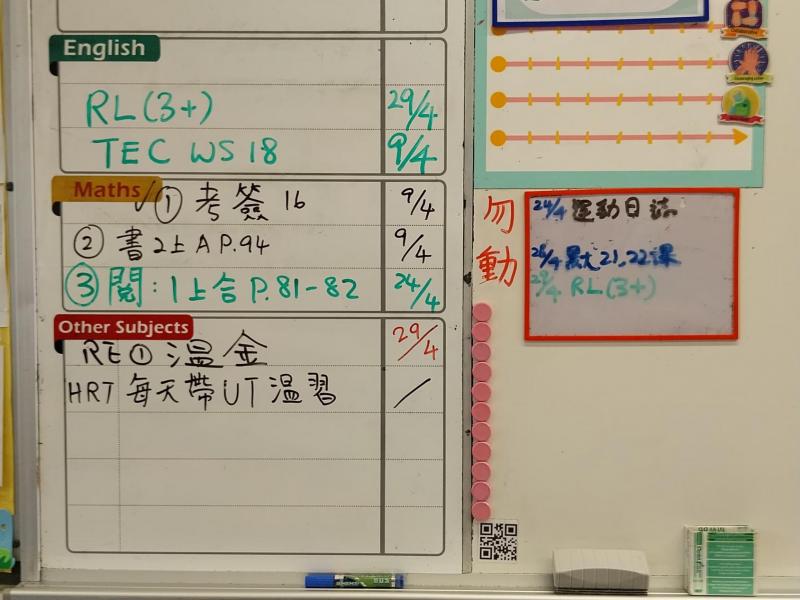 English
RL(3+) 29/4
TEC WS 18 9/4
Maths
✓① 考簽 16 9/4
② 書2上A P.94 9/4
③ 閱:1上合 P.81-82 24/4
Other Subjects
RE① 溫金 29/4
HRT 每天帶UT溫習 /
勿動
24/4 運動日誌
26/4 21,22課
29/4 RL(3+)